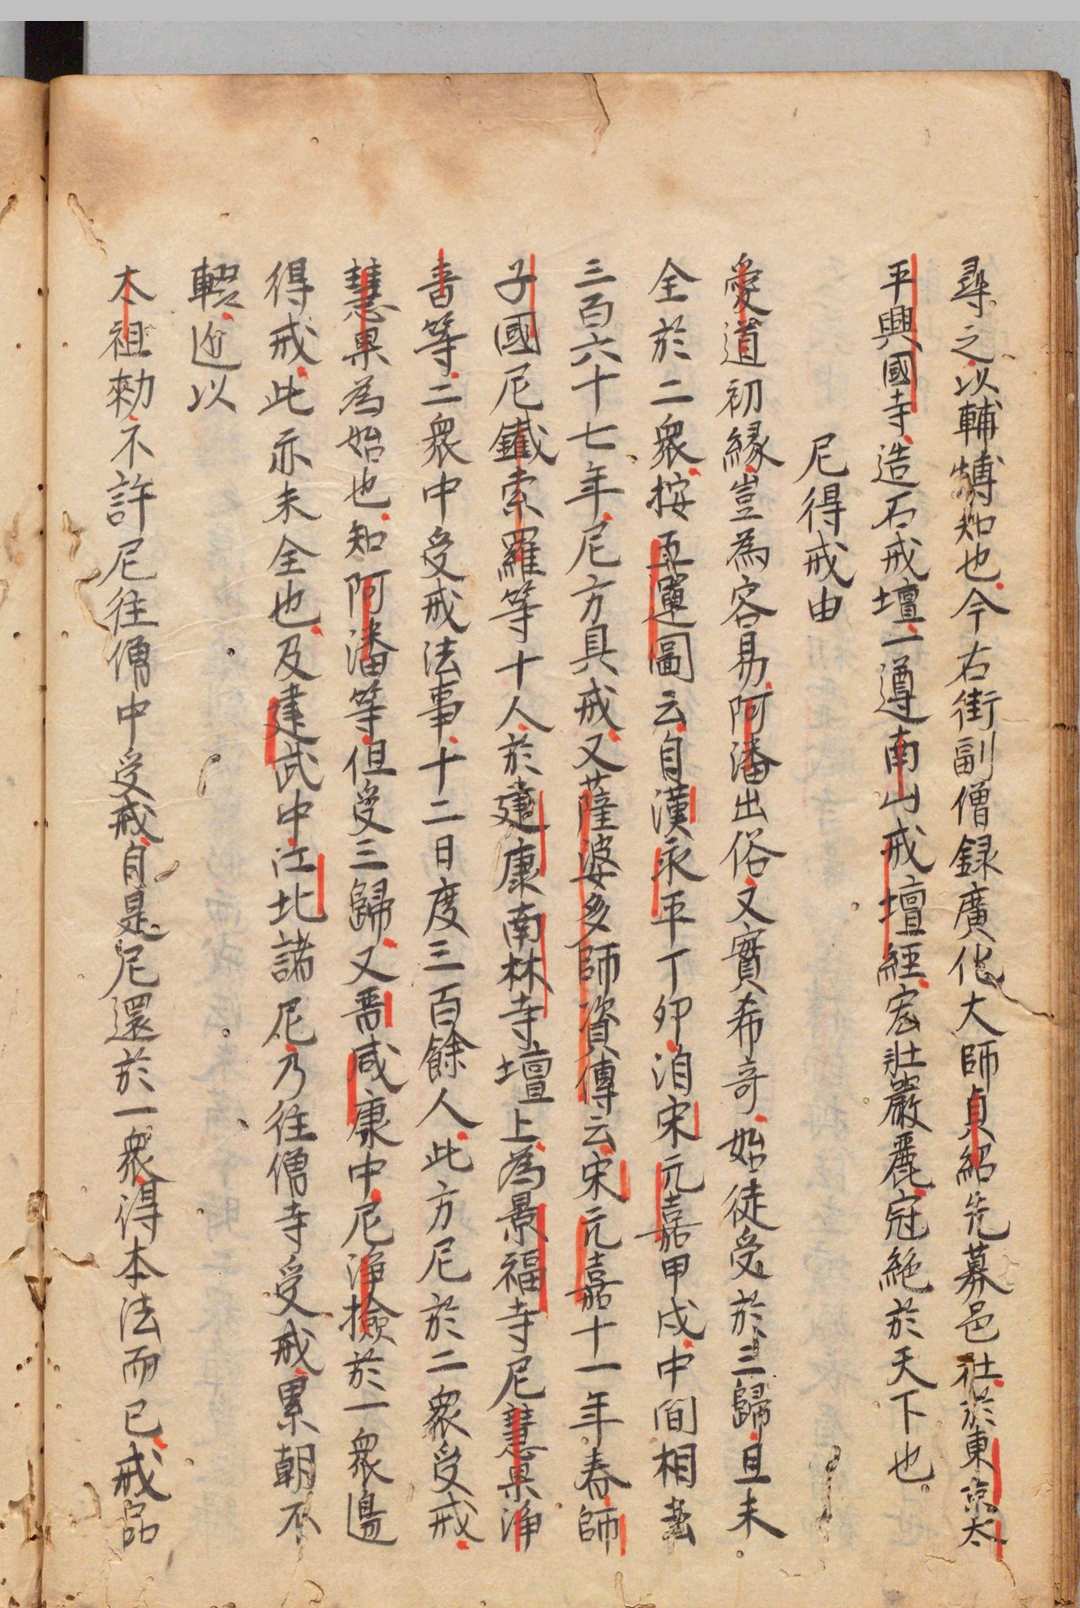 尋之以輔博知也今右街副僧録廣化大師貞紹先募邑社於東京太
平興國寺造石戒壇一遵南山戒壇經宏壯嚴麗冠絶於天下也
尼得戒由
愛道初縁豈為容易阿潘出俗又實希奇始徒受於三歸且未
全於二衆按五運圖云自漢永平丁卯洎宋元嘉甲戌中間相去
三百六十七年尼方具戒又薩婆多師資傳云宋元嘉十一年春師
子國尼鐵索羅等十人於建康南林寺壇上為景福寺尼慧果淨
音等二衆中受戒法事十二日度三百餘人此方尼於二衆受戒
慧果為始也知阿潘等但受三歸又晋咸康中尼淨撿於一衆邊
得戒此亦未全也及建武中江北諸尼乃往僧寺受戒累朝不
輟近以
太祖勅不許尼往僧中受戒自是尼還於一衆得本法而已戒品